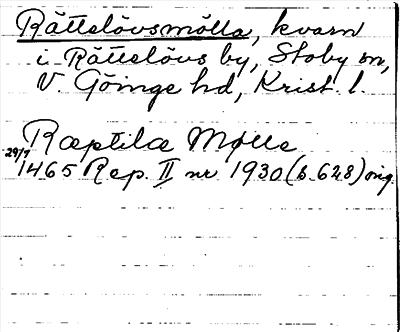 Rättelövsmölla, kvarn
i Rättelövs by, Stoby sn,
V. Göinge hd, Krist. l.
Ræptilæ Mølle
29/9 1465 Rep. II nr 1930 (s. 628) orig.